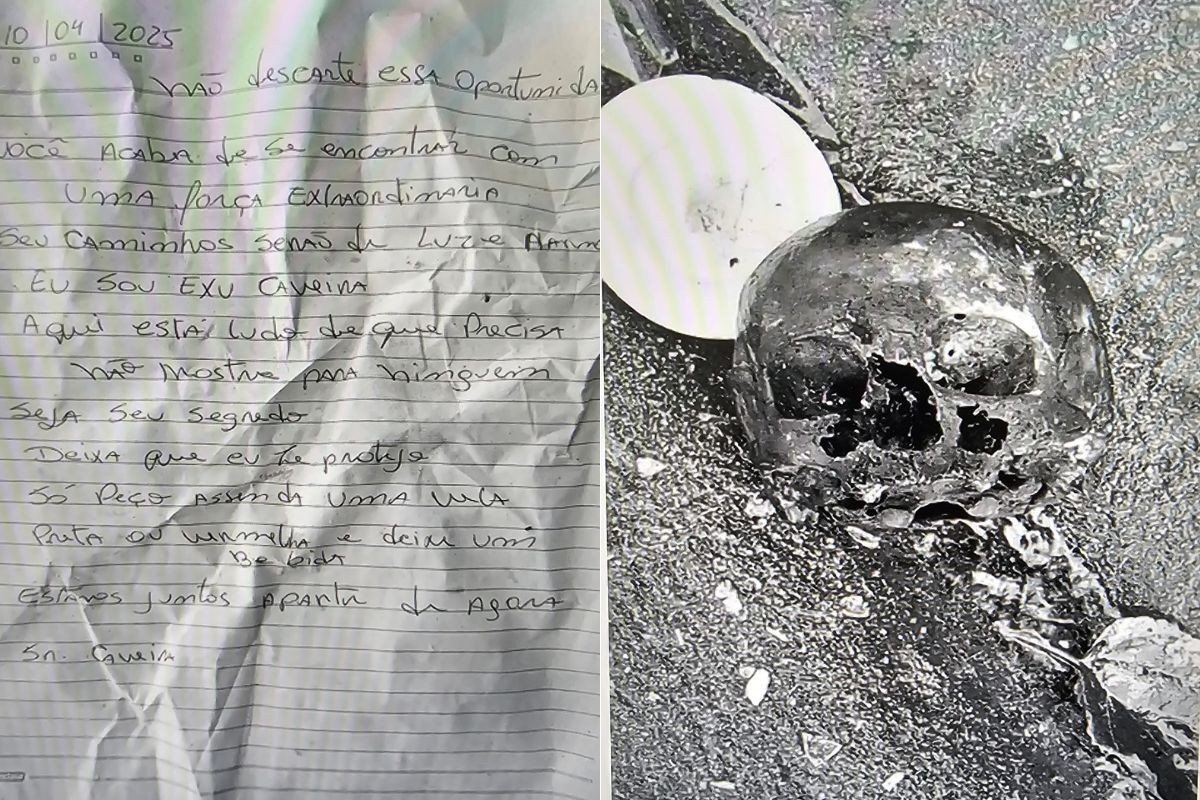 10/04/2025
não descarte essa oportunida
você acaba de se encontrar com
uma força extraordinaria
Seu caminhos serão de luz e
Eu sou Exu Caveira
Aqui está tudo de que precisa
não mostre para ninguem
Seja seu segredo
Deixa que eu te proteja
Só peço assenda uma vela
preta ou vermelha e deixe um
Bebida
Estamos juntos aparti de agora
Sr. Caveira